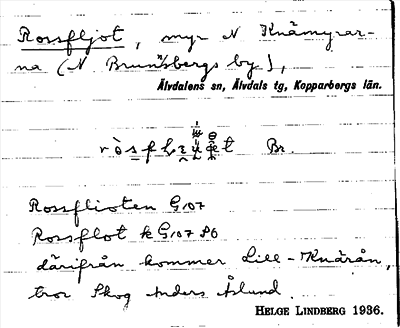 Rossfljot, myr N Knämyrar-
na (N Brunnsbergs by),
Älvdalens sn, Älvdals tg, Kopparbergs län.
Br.
Rossflioten G107
Rossflot k G107 St
därifrån kommer Lill-Knärån,
tror Skog Anders Åslund.
HELGE LINDBERG 1936.